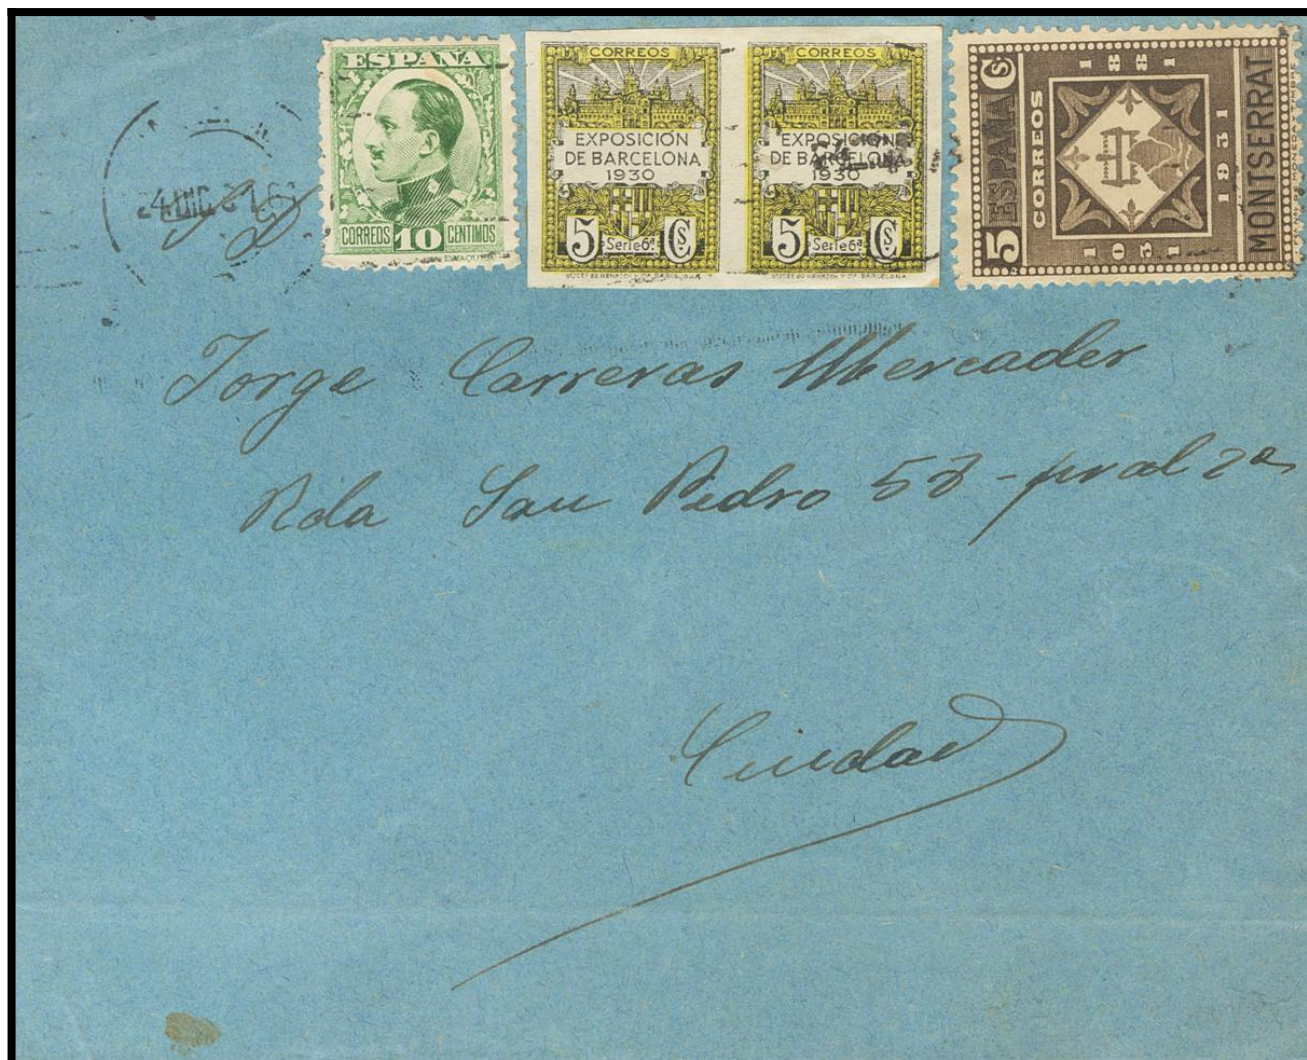 ESPAÑA
CORREOS 10 CENTIMOS
CORREOS
EXPOSICIÓN
DE BARCELONA
1930
5 Serie 6ª Cs.
CORREOS
EXPOSICIÓN
DE BARCELONA
1930
5 Serie 6ª Cs.
5 ESPAÑA Cs
CORREOS
1881
1031
1931
MONTSERRAT
Jorge Carreras Mercader
Rda San Pedro 52 - pral 2ª
Ciudad